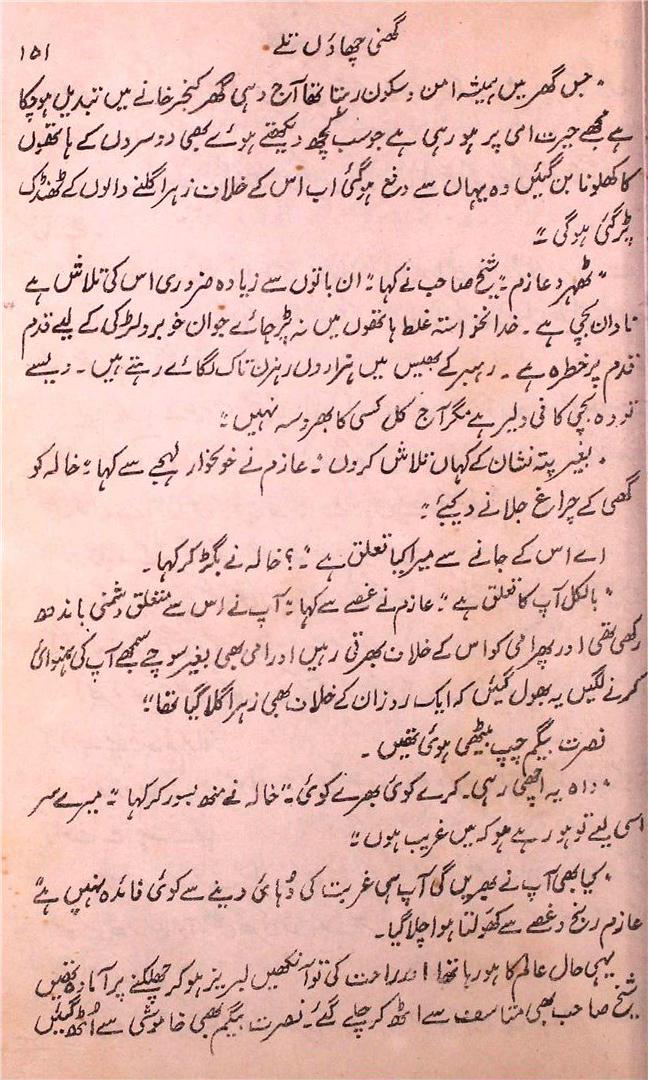 گھنی چھاؤں تلے
۱۵۱
" جس گھر میں ہمیشہ امن و سکون رہتا تھا آج وہی گھر کنجر خانے میں تبدیل ہو چکا
ہے مجھے حیرت امی پر ہو رہی ہے جو سب کچھ دیکھتے ہوئے بھی دوسروں کے ہاتھوں
کا کھلونا بن گئیں وہ یہاں سے دفع ہو گئی اب اس کے خلاف زہر اگلنے والوں کے ٹھنڈک
پڑ گئی ہو گی "
" ٹھہرو عازم " شیخ صاحب نے کہا " ان باتوں سے زیادہ ضروری اس کی تلاش ہے
نادان بچی ہے ۔ خدانخواستہ غلط ہاتھوں میں نہ پڑ جائے جوان خوبرو لڑکی کے لیے قدم
قدم پر خطرہ ہے ۔ رہبر کے بھیس میں ہزاروں رہزن تاک لگائے رہتے ہیں ۔ ویسے
تو وہ بچی کافی دلیر ہے مگر آج کل کسی کا بھروسہ نہیں "
" بغیر پتہ نشان کے کہاں تلاش کروں " عازم نے خونخوار لہجے سے کہا " خالہ کو
گھی کے چراغ جلانے دیجئے "
اے اس کے جانے سے میرا کیا تعلق ہے "؟ خالہ نے بگڑ کر کہا ۔
" بالکل آپ کا تعلق ہے " عازم نے غصے سے کہا " آپ نے اس سے متعلق دشمنی باندھ
رکھی تھی اور پھر امی کو اس کے خلاف بھرتی رہیں اور امی بھی بغیر سوچے سمجھے آپ کی ہمنوائی
کرنے لگیں یہ بھول گئیں کہ ایک روز ان کے خلاف بھی زہر اگلا گیا تھا "
نصرت بیگم چپ بیٹھی ہوئی تھیں ۔
" واہ یہ اچھی رہی ۔ کرے کوئی بھرے کوئی " خالہ نے منھ بسور کر کہا " میرے سر
اسی لیے تو ہو رہے ہو کہ میں غریب ہوں "
" کیا بھی آپ نے بھریں گی آپ ہی غربت کی دُہائی دینے سے کوئی فائدہ نہیں ہے "
عازم رنج و غصے سے کھولتا ہوا چلا گیا ۔
یہی حال عالم کا ہو رہا تھا اور راحت کی تو آنکھیں لبریز ہو کر چھلکنے پر آمادہ تھیں
شیخ صاحب بھی متاسف سے اٹھ کر چلے گئے ۔ نصرت بیگم بھی خاموشی سے اُٹھ گئیں